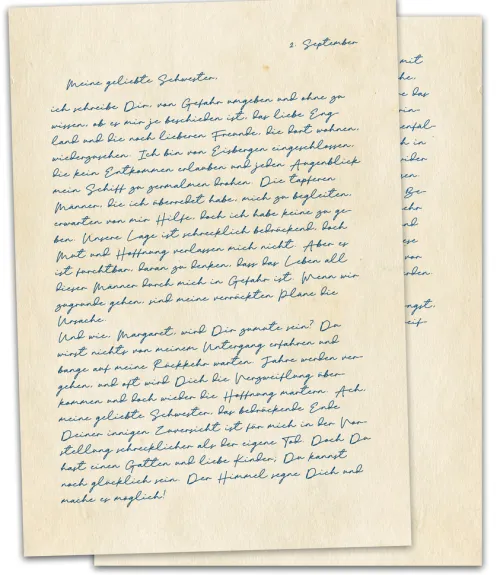 2. September
Meine geliebte Schwester,
ich schreibe Dir, von Gefahr umgeben und ohne zu
wissen, ob es mir je beschieden ist, das liebe Eng-
land und die noch lieberen Freunde, die dort wohnen,
wiederzusehen. Ich bin von Eisbergen eingeschlossen,
die kein Entkommen erlauben und jeden Augenblick
mein Schiff zu zermalmen drohen. Die tapferen
Männer, die ich überredet habe, mich zu begleiten,
erwarten von mir Hilfe, doch ich habe keine zu ge-
ben. Unsere Lage ist schrecklich bedrückend, doch
Mut und Hoffnung verlassen mich nicht. Aber es
ist furchtbar, daran zu denken, dass das Leben all
dieser Männer durch mich in Gefahr ist. Wenn wir
zugrunde gehen, sind meine verrückten Pläne die
Ursache.
Und wie, Margaret, wird Dir zumute sein? Du
wirst nichts von meinem Untergang erfahren und
bange auf meine Rückkehr warten. Jahre werden ver-
gehen, und oft wird Dich die Verzweiflung über-
kommen und doch wieder die Hoffnung martern. Ach,
meine geliebte Schwester, das bedrückende Ende
Deiner innigen Zuversicht ist für mich in der Vor-
stellung schrecklicher als der eigene Tod. Doch Du
hast einen Gatten und liebe Kinder; Du kannst
noch glücklich sein. Der Himmel segne Dich und
mache es möglich!
mit
he,
e das
rin-
enfäl-
h in
nder
sen
Be-
ehr
nd
ese
vor
rden.
ngst,
reif-